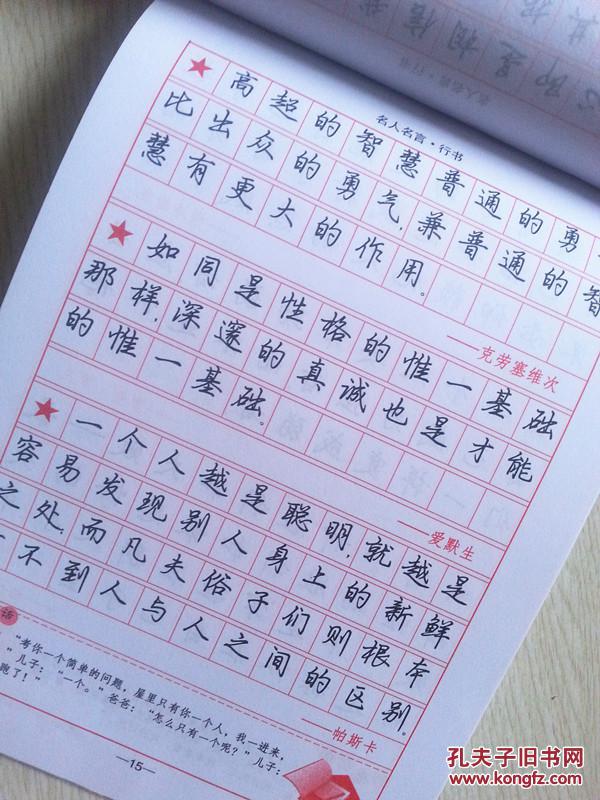 名人名言·行书
★高超的智慧普通的勇
比出众的勇气,兼普通的智
慧有更大的作用。
——克劳塞维次
★如同是性格的惟一基础
那样,深邃的真诚也是才能
的惟一基础。
——爱默生
★一个人越是聪明,就越是
容易发现别人身上的新鲜
之处,而凡夫俗子们则根本
不到人与人之间的区别。
——帕斯卡
话
“考你一个简单的问题,屋里只有你一个人,我一进来,
”儿子:“一个。”爸爸:“怎么只有一个呢?”儿子:
跑了!”
—15—
孔夫子旧书网
www.kongfz.com